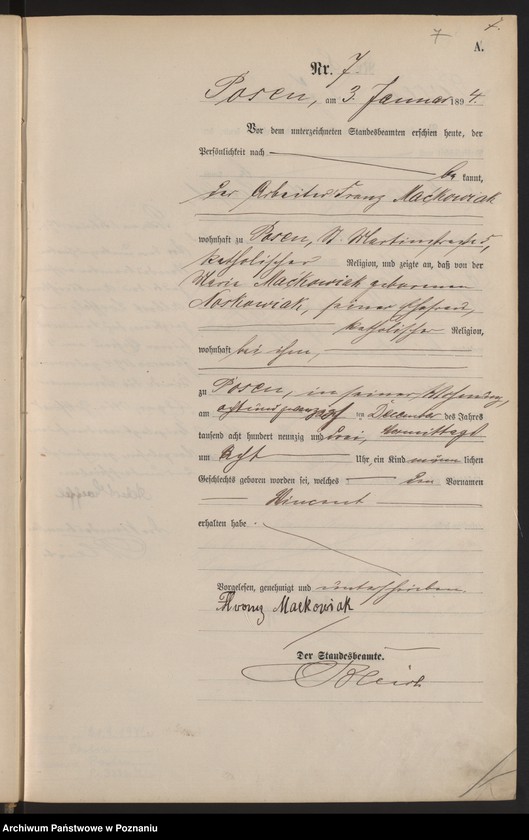 7 7.
A.
Nr. 7
Posen, am 3. Januar 1894.
Vor dem unterzeichneten Standesbeamten erschien heute, der
Persönlichkeit nach
be kannt,
der Arbeiter Franz Maćkowiak
wohnhaft zu Posen, St. Martinstraße
katholischer Religion, und zeigte an, daß von der
Marie Maćkowiak geborenen
Norkowiak, seiner Ehefrau,
katholischer Religion,
wohnhaft bei ihm,
zu Posen, in seiner Wohnung,
am achtundzwanzigsten December des Jahres
tausend acht hundert neunzig und drei, Vormittags
um acht Uhr, ein Kind männlichen
Geschlechts geboren worden sei, welches den Vornamen
Vincent
erhalten habe.
Vorgelesen, genehmigt und unterschrieben.
Franz Maćkowiak
Der Standesbeamte.
Archiwum Państwowe w Poznaniu